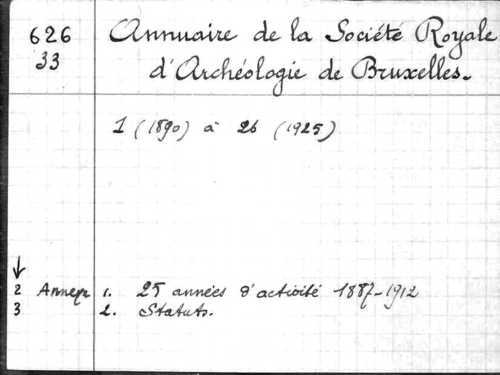 626 Annuaire de la Société Royale
33 d'Archéologie de Bruxelles.
1 (1890) à 26 (1925)
↓
2 Annexe 1. 25 années d'activité 1887-1912
3 2. Statuts.